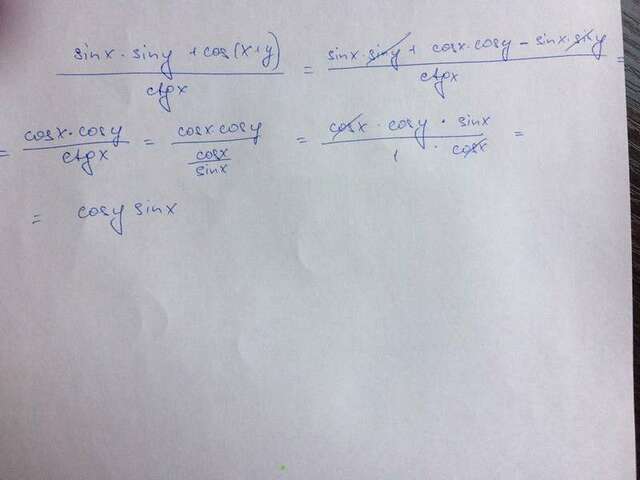 (sinx · siny + cos(x+y)) / ctgx = (sinx · siny + cosx·cosy − sinx·siny) / ctgx =
= (cosx·cosy) / ctgx = (cosx·cosy) / (cosx / sinx) = (cosx · cosy · sinx) / (1 · cosx) =
= cosy sinx